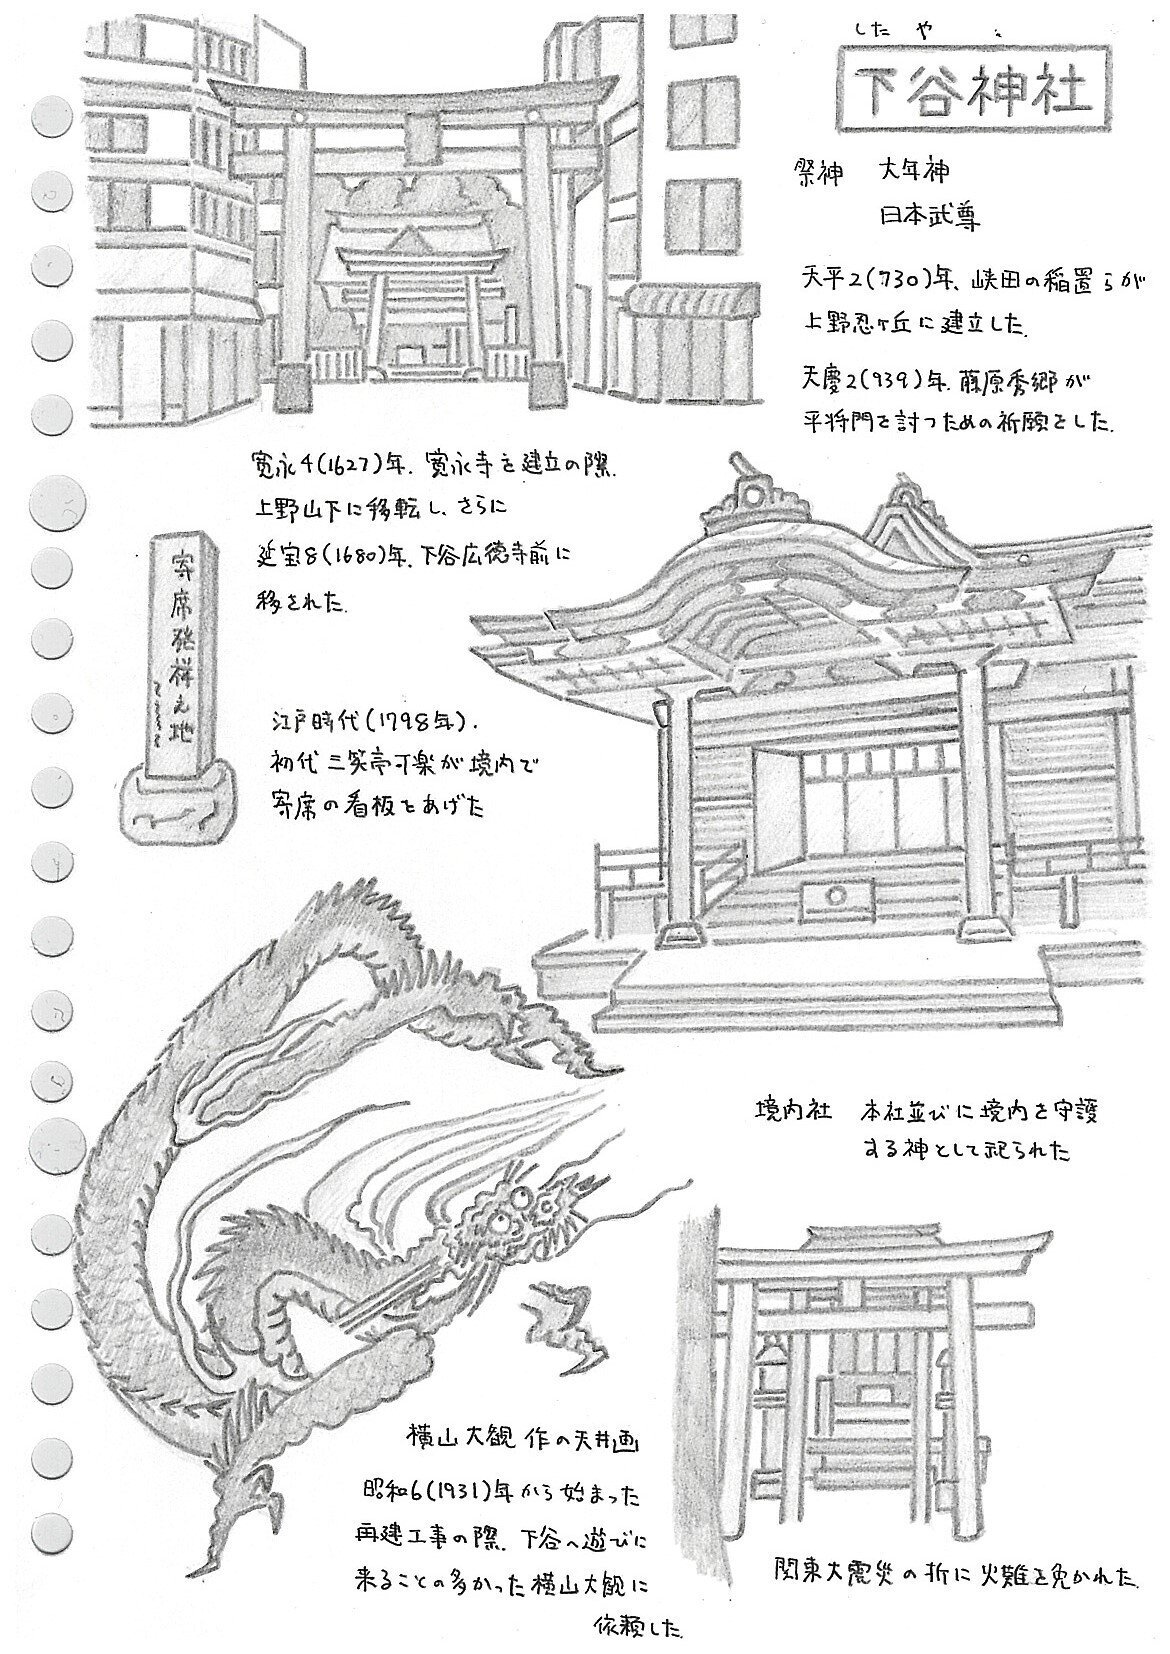 したや
下谷神社
祭神 大年神
日本武尊
天平2(730)年、峡田の稲置らが
上野忍ヶ丘に建立した。
天慶2(939)年、藤原秀郷が
平将門を討つための祈願をした。
寛永4(1627)年、寛永寺を建立の際、
上野山下に移転し、さらに
延宝8(1680)年、下谷広徳寺前に
移された。
寄席発祥之地
江戸時代(1798年)、
初代三笑亭可楽が境内で
寄席の看板をあげた
境内社 本社並びに境内を守護
する神として祀られた
横山大観作の天井画
昭和6(1931)年から始まった
再建工事の際、下谷へ遊びに
来ることの多かった横山大観に
依頼した。
関東大震災の折に火難を免かれた。